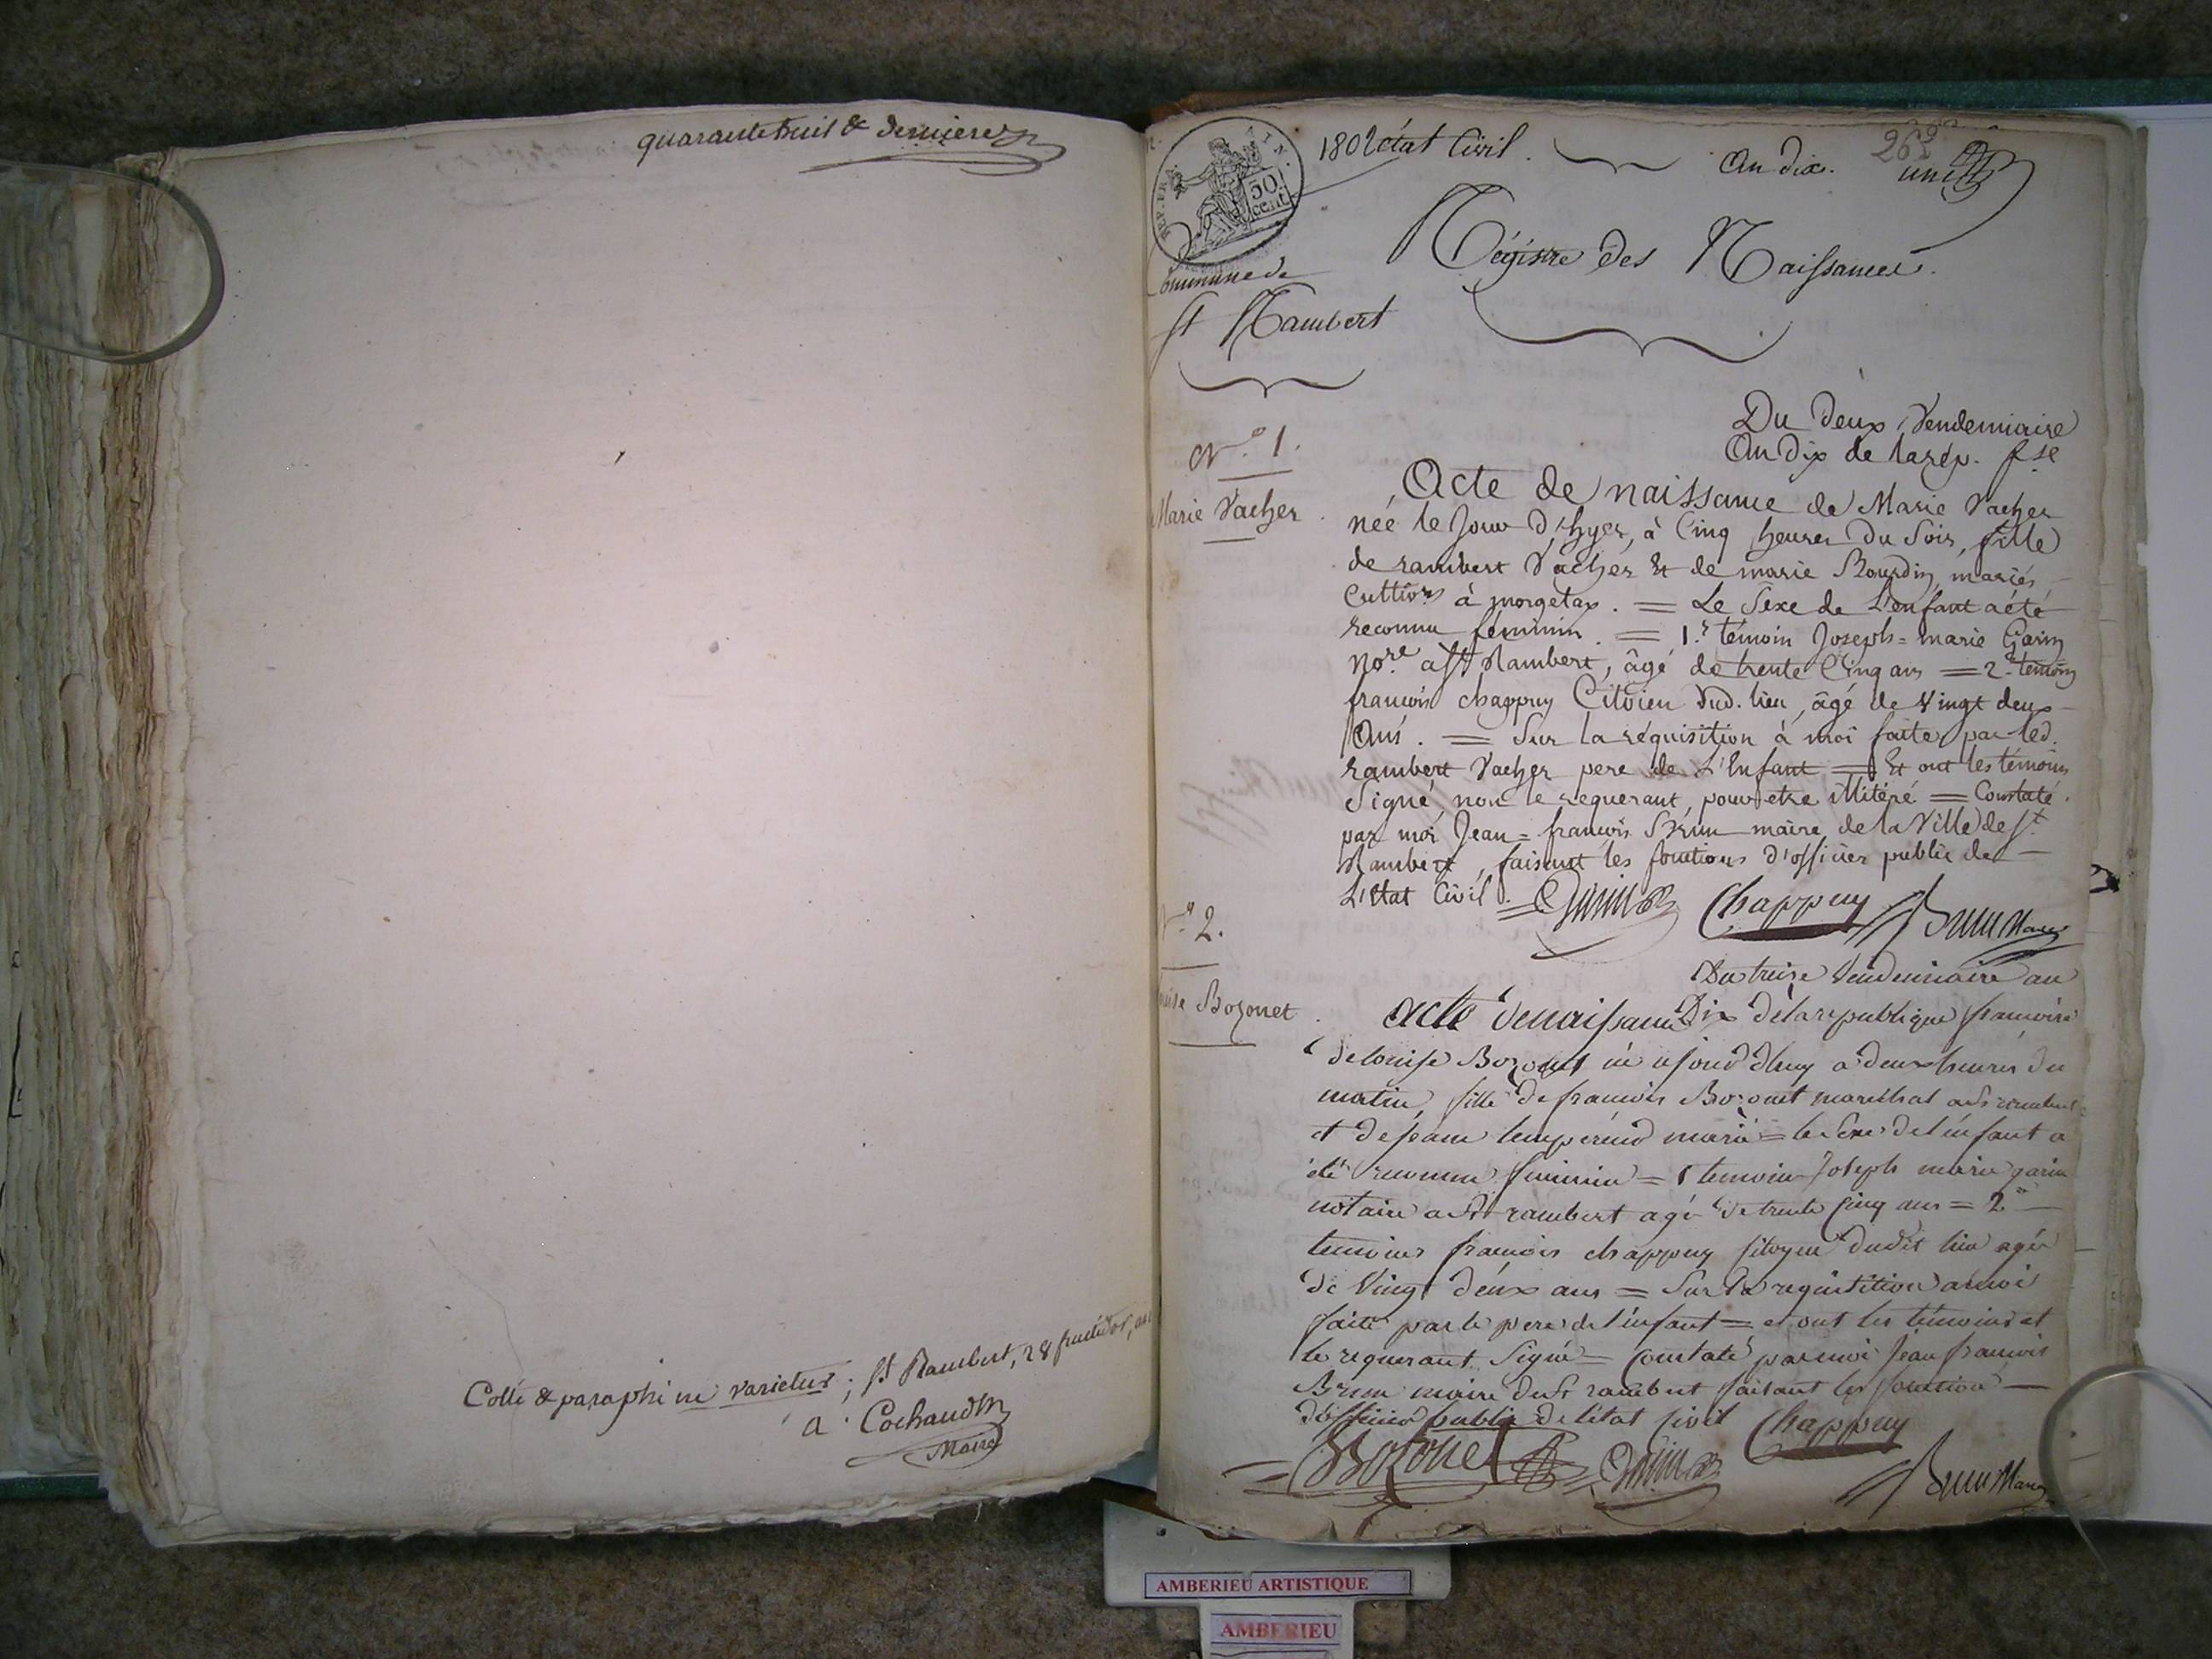 quarantehuit & derniere
Cotté & paraphé ne varietur; St Rambert, 28 fructidor, an
a. Cochaud
Maire
REP. FRA.
50
cent.
1802 état Civil.
An dix.
262
un
Commune de
St Rambert
Régistre des Naissances.
Du deux Vendemiaire
An dix de la rép. fse
N.º 1.
Marie Vacher
Acte de naissance de Marie Vacher
née le Jour d'hyer, à Cinq heures du Soir, fille
de rambert Vacher Et de marie Bourdin mariés
Cultivrs à morgetax. = Le Sexe de L'enfant a été
reconnu féminin. = 1.r témoin Joseph=marie Garin
Nore. a St Rambert, âgé de trente Cinq ans = 2.e temoin
francois chappuy Citoien dud. lieu, âgé de Vingt deux
Ans. = Sur la réquisition à moi faite par led.
rambert Vacher pere de L'Enfant = Et ont les témoins
Signé, non le requerant, pour etre illitéré = Constaté
par moi Jean=francois Brun maire de la Ville de St
Rambert, faisant les fonctions d'officier public de
L'Etat Civil. = Garin Chappuy Brun Maire
N.º 2.
Louise Bozonet
Du treize Vendemiaire an
Dix de la republique francoise
acte de naissance
de louise Bozonet né ajourdhuy a deux heures du
matin, fille de francois Bozonet maréchal a St rambert
et de jeane tempérend marié = le Sexe de l'enfant a
été reconnu feminin = 1 temoin Joseph marie garin
notaire a St rambert agé de trente cinq ans = 2e
temoins francois chappuy sitoyen dudit lieu agé
de Vingt deux ans = Sur la requisition a moi
faite par le pere de l'enfant = et ont les témoins et
le requerant Signé = constaté par moi Jean francois
Brun maire de St rambert faisant les fonction
d'officier public de l'état civil Chappuy
Bozonet Garin
Brun Maire
AMBERIEU ARTISTIQUE
AMBERIEU